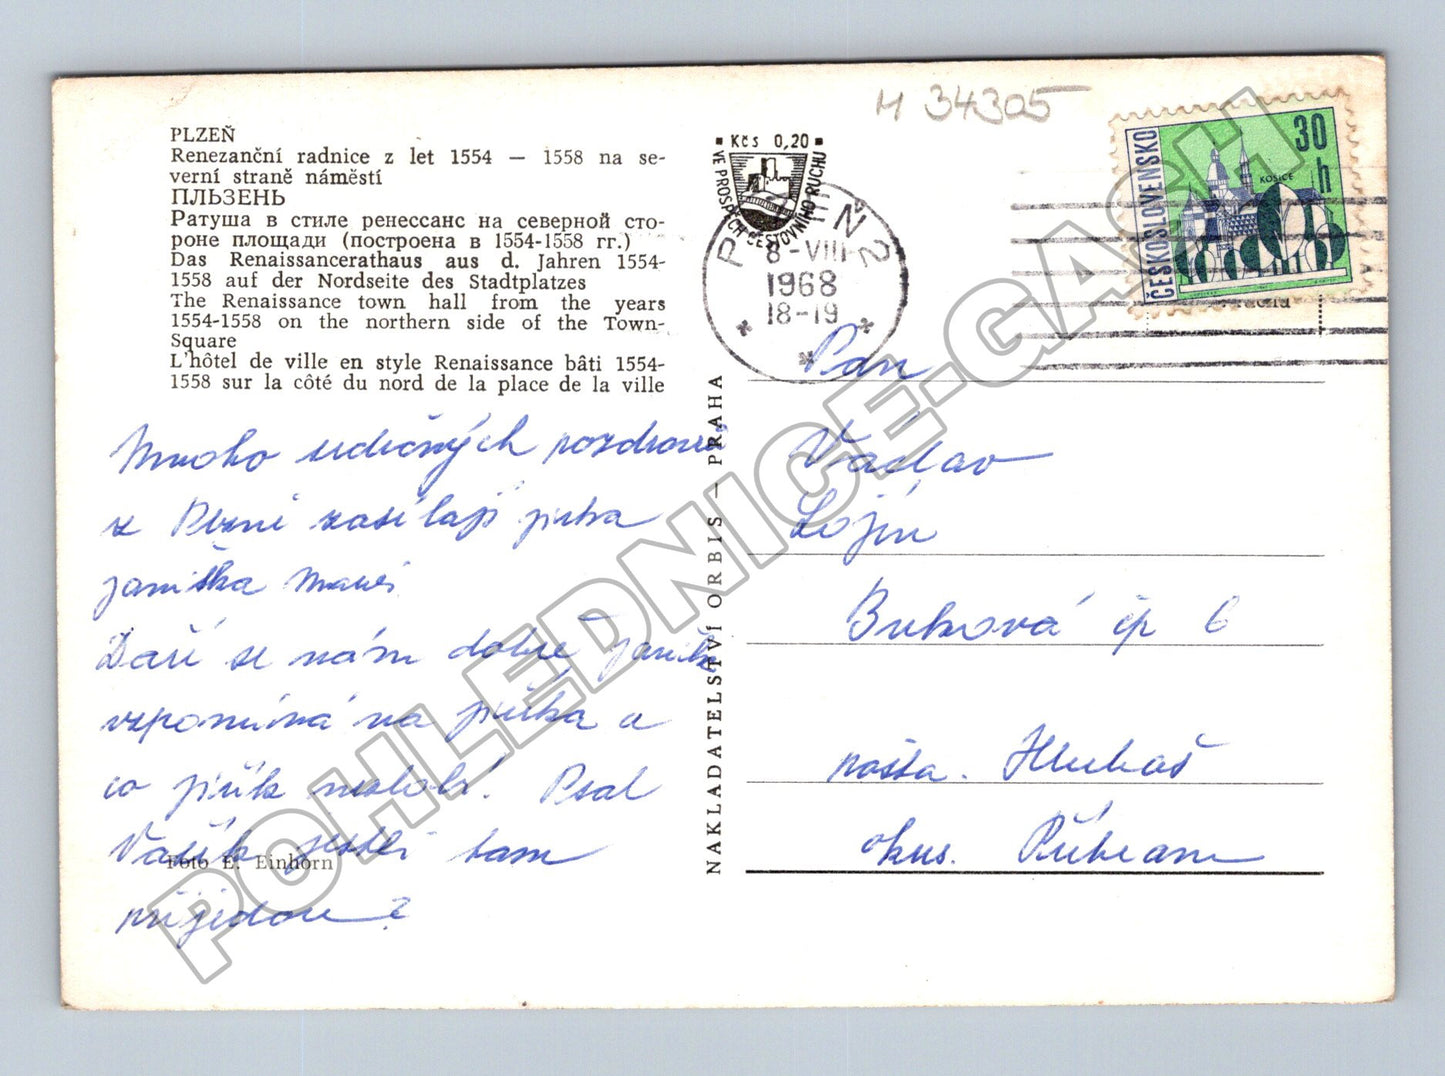 PLZEŇ
Renezanční radnice z let 1554 — 1558 na se-
verní straně náměstí
ПЛЬЗЕНЬ
Ратуша в стиле ренессанс на северной сто-
роне площади (построена в 1554-1558 гг.)
Das Renaissancerathaus aus d. Jahren 1554-
1558 auf der Nordseite des Stadtplatzes
The Renaissance town hall from the years
1554-1558 on the northern side of the Town-
Square
L'hôtel de ville en style Renaissance bâti 1554-
1558 sur la côté du nord de la place de la ville
Mnoho srdečných pozdravů
z Plzně zasílají
Janička
Daří se nám dobře Janička
vzpomíná na Jiříka a
co Jiřík nezlobí. Psal
Vašík jestli tam
přijedou?
Foto E. Einhorn
NAKLADATELSTVÍ ORBIS — PRAHA
M 34305
Kčs 0,20
VE PROSPĚCH CESTOVNÍHO RUCHU
PLZEŇ 2
8-VIII
1968
18-19
ČESKOSLOVENSKO
30 h
KOŠICE
Pan
Václav
Lojín
Buková čp 6
pošta. Hluboš
okres. Příbram
POHLEDNICE-GASH